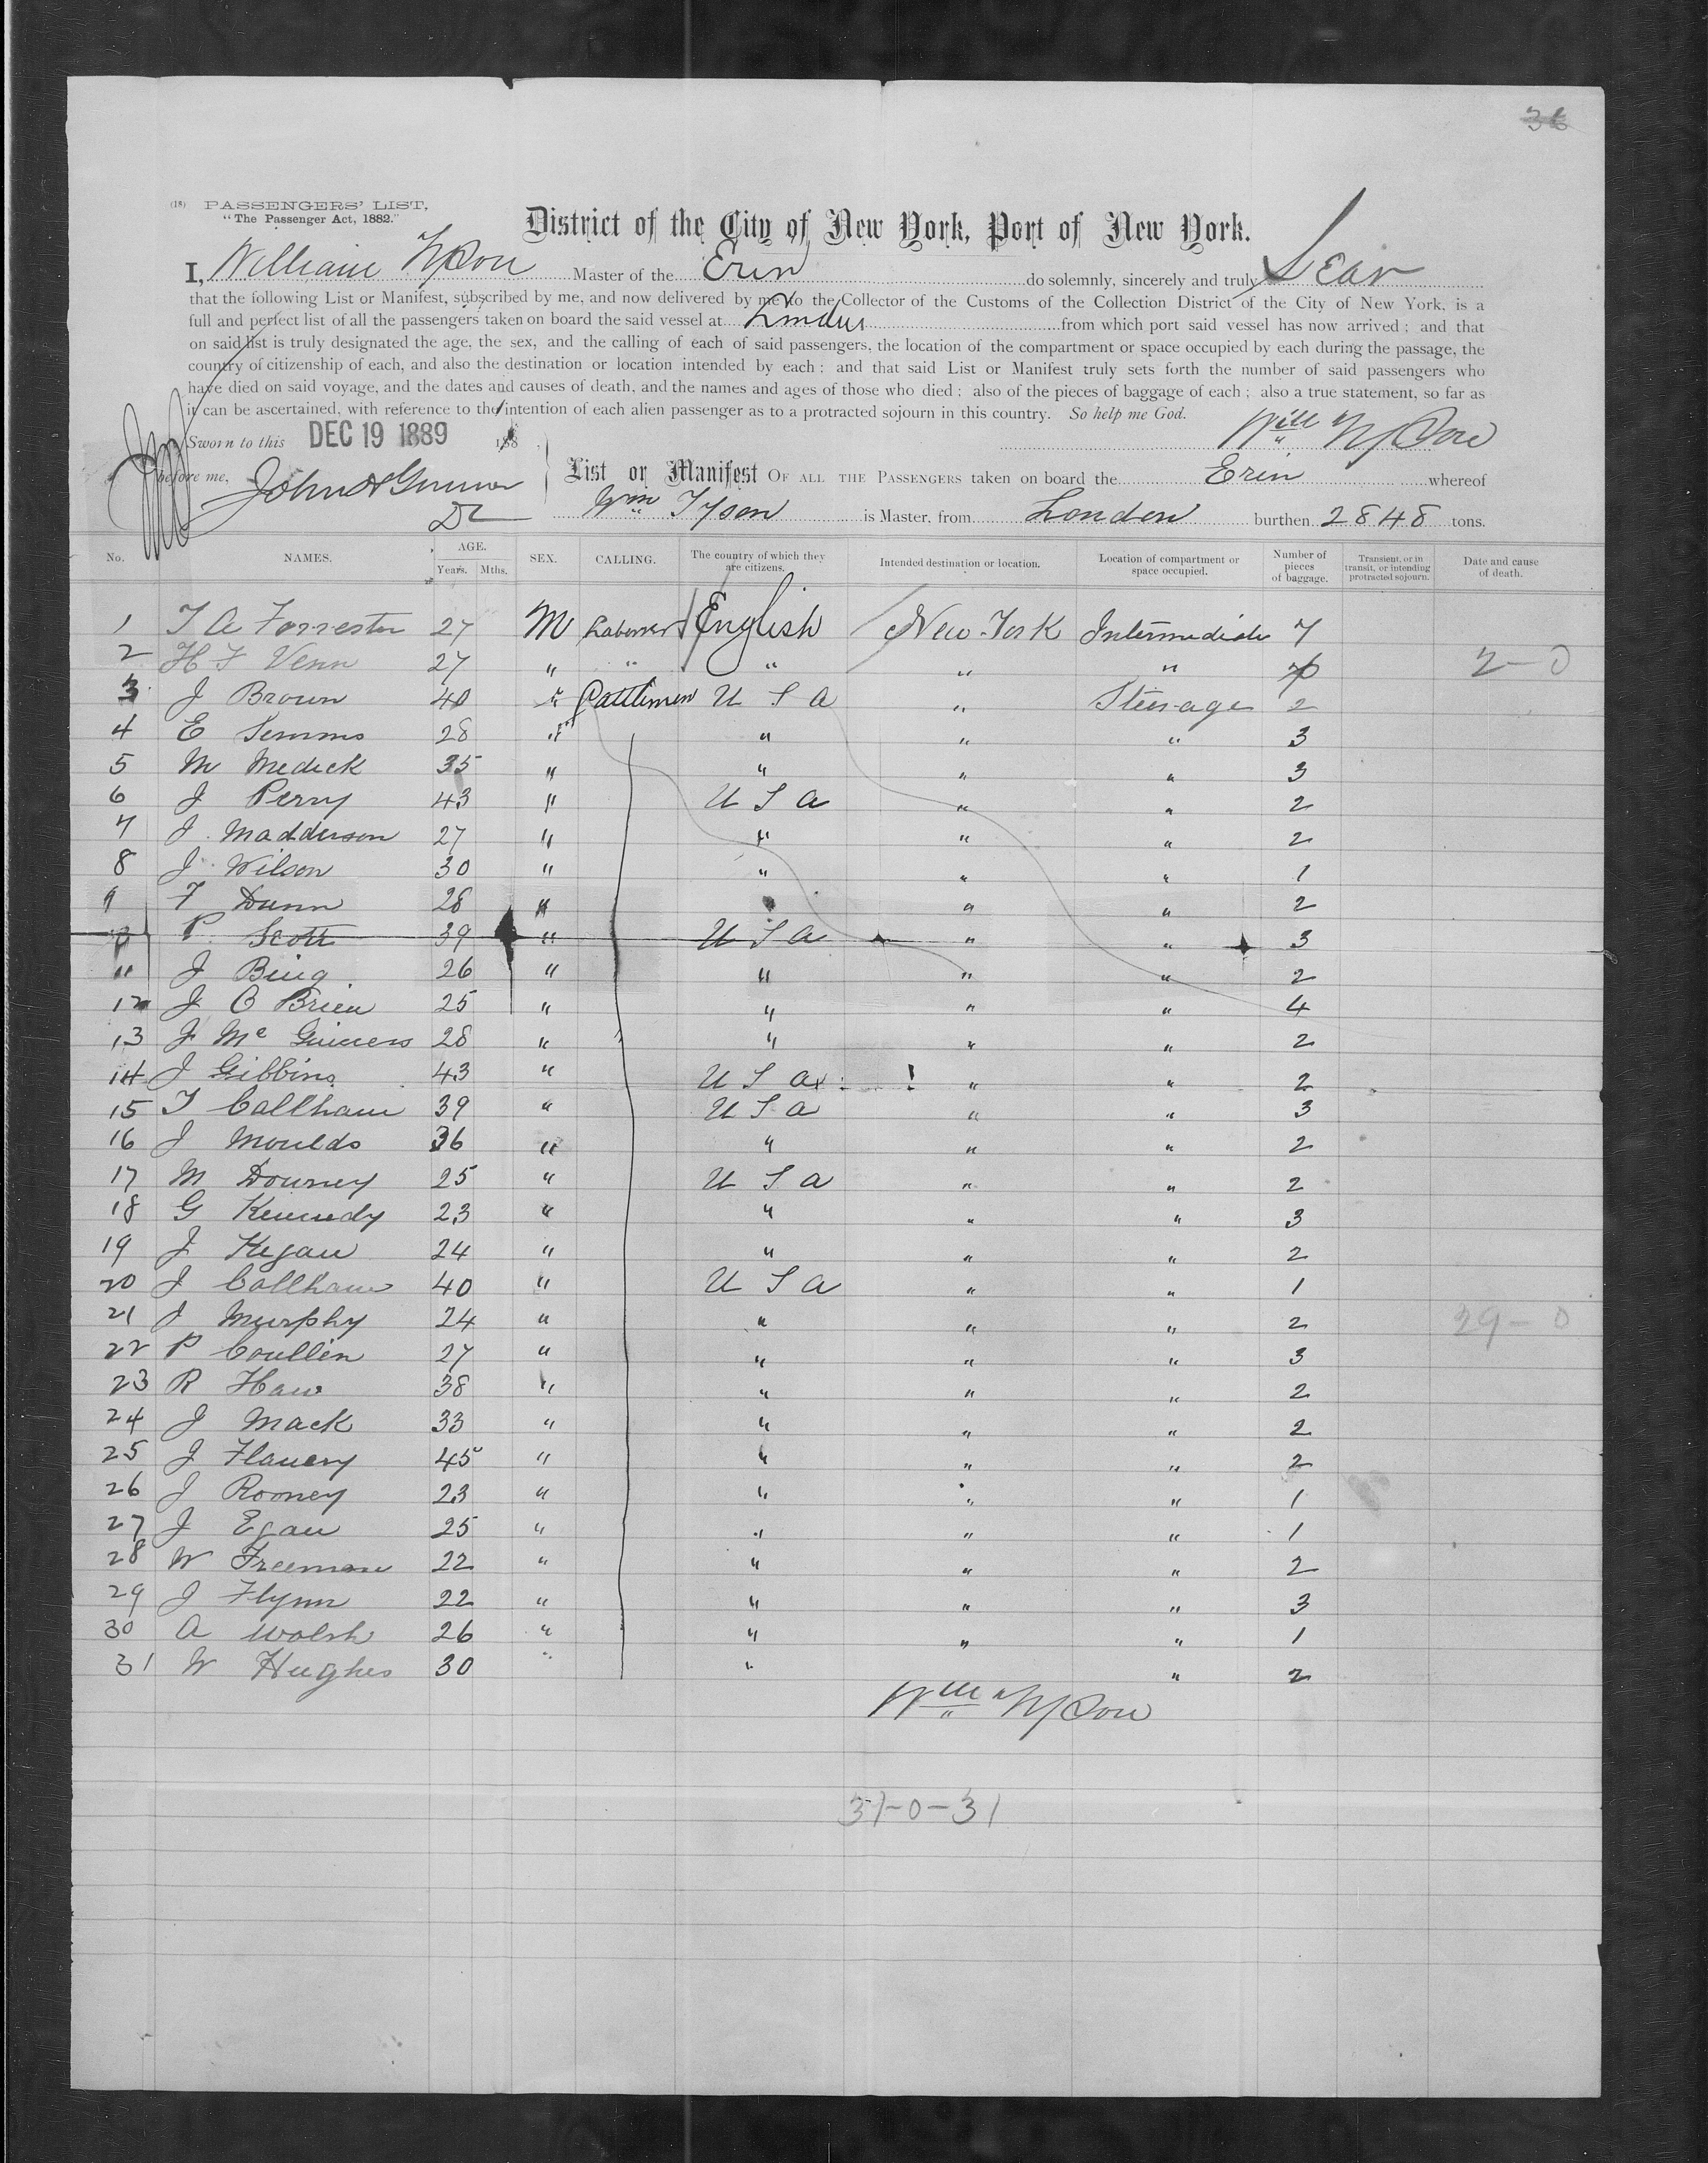 36
(18) PASSENGERS' LIST,
"The Passenger Act, 1882."
District of the City of New York, Port of New York.
I, William Tyson Master of the Erin do solemnly, sincerely and truly Swear
that the following List or Manifest, subscribed by me, and now delivered by me to the Collector of the Customs of the Collection District of the City of New York, is a
full and perfect list of all the passengers taken on board the said vessel at London from which port said vessel has now arrived; and that
on said list is truly designated the age, the sex, and the calling of each of said passengers, the location of the compartment or space occupied by each during the passage, the
country of citizenship of each, and also the destination or location intended by each; and that said List or Manifest truly sets forth the number of said passengers who
have died on said voyage, and the dates and causes of death, and the names and ages of those who died; also of the pieces of baggage of each; also a true statement, so far as
it can be ascertained, with reference to the intention of each alien passenger as to a protracted sojourn in this country. So help me God.
Sworn to this DEC 19 1889 188 Wm Tyson
before me, List or Manifest OF ALL THE PASSENGERS taken on board the Erin whereof
Wm Tyson is Master, from London burthen 2848 tons.
No. NAMES. AGE. Years. Mths. SEX. CALLING. The country of which they are citizens. Intended destination or location. Location of compartment or space occupied. Number of pieces of baggage. Transient, or in transit, or intending protracted sojourn. Date and cause of death.
1 T A Forrester 27 M Laborer English New York Intermediate 7
2 H F Venn 27 " " " " " 2-0
3 J Brown 40 " Cattlemen U S A " Steerage 2
4 E Semms 28 " " " " 3
5 M Medick 35 " " " " 3
6 J Perry 43 " U S A " " 2
7 J Madderson 27 " " " " 2
8 J Wilson 30 " " " " 1
9 F Dunn 28 " " " " 2
10 P Scott 39 " U S A " " 3
11 J Bing 26 " " " " 2
12 J O Brien 25 " " " " 4
13 J Mc Guiness 28 " " " " 2
14 J Gibbins 43 " U S A " " 2
15 T Callham 39 " U S A " " 3
16 J Moulds 36 " " " " 2
17 M Downey 25 " U S A " " 2
18 G Kennedy 23 " " " " 3
19 J Kegan 24 " " " " 2
20 J Callham 40 " U S A " " 1
21 J Murphy 24 " " " " 2 29-0
22 P Coullin 27 " " " " 3
23 R Haw 38 " " " " 2
24 J Mack 33 " " " " 2
25 J Flanery 45 " " " " 2
26 J Rooney 23 " " " " 1
27 J Egan 25 " " " " 1
28 W Freeman 22 " " " " 2
29 J Flynn 22 " " " " 3
30 A Walsh 26 " " " " 1
31 W Hughes 30 " " " 2
Wm Tyson
31-0-31